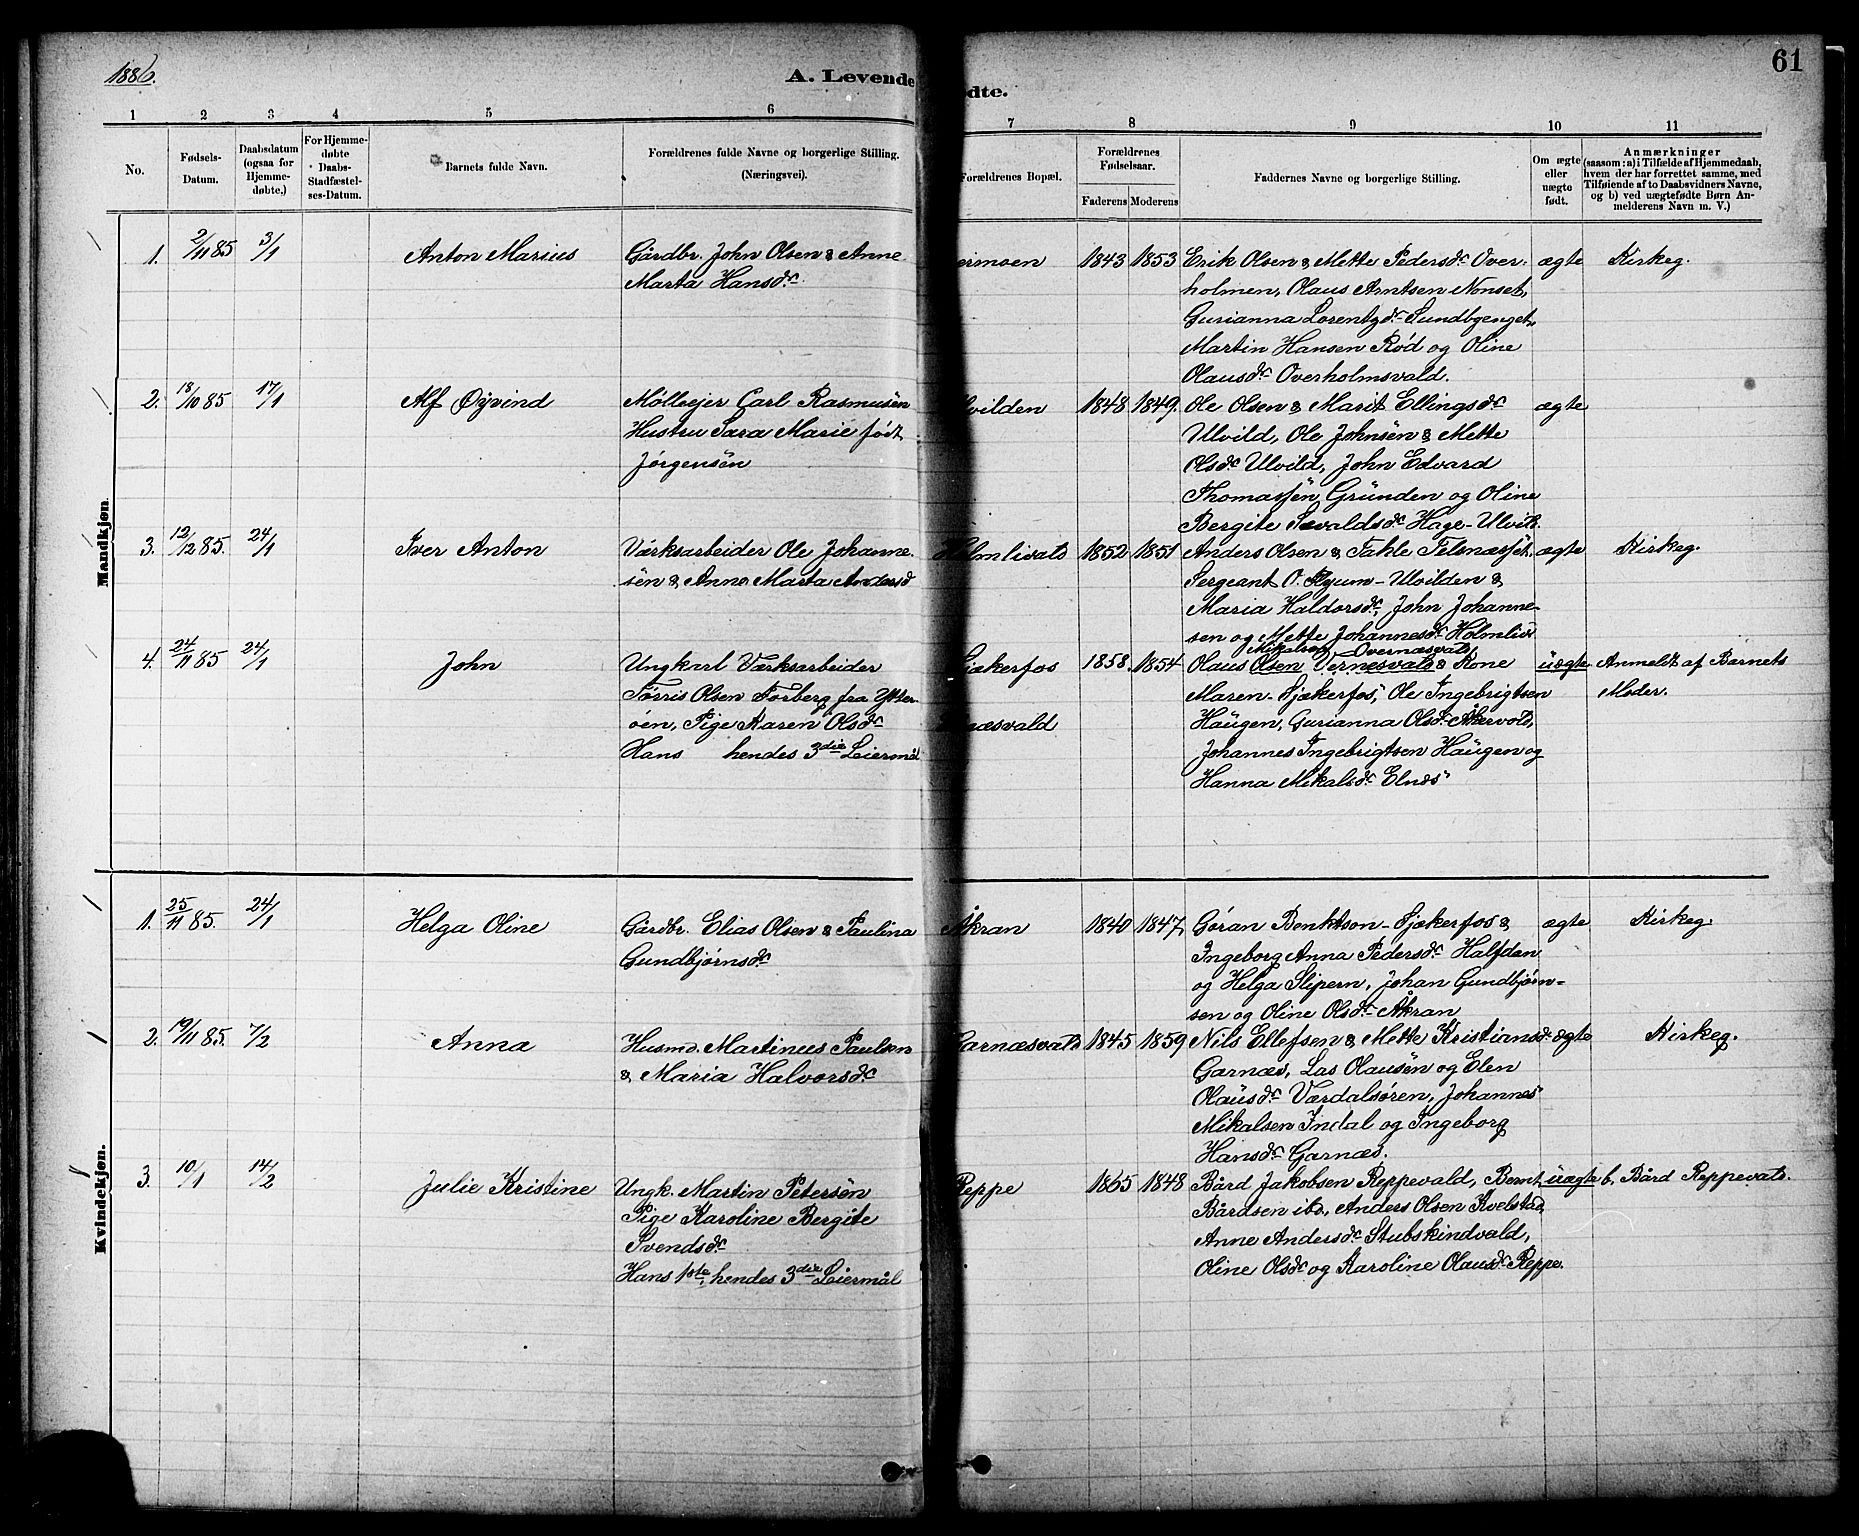 1886.
A. Levende
ødte.
61
1 2 3 4 5 6 7 8 9 10 11
No.
Fødsels-
Datum.
Daabsdatum
(ogsaa for
Hjemme-
døbte.)
For Hjemme-
døbte
Daabs-
Stadfæstel-
ses-Datum.
Barnets fulde Navn.
Forældrenes fulde Navne og borgerlige Stilling.
(Næringsvei).
Forældrenes Bopæl.
Forældrenes
Fødselsaar.
Faderens Moderens
Faddernes Navne og borgerlige Stilling.
Om ægte
eller
uægte
født.
Anmærkninger
(saasom: a) i Tilfælde af Hjemmedaab,
hvem der har forrettet samme, med
Tilføiende af to Daabsvidners Navne,
og b) ved uægtefødte Børn An-
melderens Navn m. V.)
Mandkjøn.
1. 2/11 85 3/1 Anton Marius
Gårdbr. John Olsen & Anne
Marta Hansdr.
ermoen 1843 1853
Erik Olsen & Mette Pedersdr. Over-
holmen, Olaus Arntsen Nonset,
Gurianna Lorentzdr. Sundbyenget,
Martin Hansen Rød og Oline
Olausdr. Overholmsvald.
ægte Kirkeg.
2. 18/10 85 17/1 Alf Øyvind
Mølleejer Carl Rasmusen
Hustru Sara Marie født
Jørgensen
lvilden 1848 1849.
Ole Olsen & Marit Ellingsdr.
Ulvild, Ole Johnsen & Mette
Olsdr. Ulvild, John Edvard
Thomassen Grunden og Oline
Bergite Sevaldsdr. Hage-Ulvild.
ægte
3. 12/12 85. 24/1 Iver Anton
Værksarbeider Ole Johanne-
sen & Anna Marta Andersd
Holmlivald 1852 1851
Anders Olsen & Tahle Telsnæsset,
Sergeant O. Ryum-Ulvilden &
Maria Haldorsdr., John Johanne-
sen og Mette Johannesdr. Holmlivi
ægte Kirkeg.
4. 24/11 85 24/1 John
Ungkarl Værksarbeider
Tørris Olsen Forberg fra Ytter-
øen, Pige Karen Olsdr.
Hans hendes 3die Leiersmål
jækerfos
næsvald
1858. 1854.
Mikalsen Overnæsvald
Olaus Olsen Vernesvald & Kone
Maren Sjækerfos, Ole Ingebrigtsen
Haugen, Gurianna Olsdr. Åkervold,
Johannes Ingebrigtsen Haugen og
Hanna Mikalsdr. Elnæs
uægte. Anmeldt af Barnets
Moder.
Kvindekjøn.
1. 25/11 85. 24/1 Helga Oline
Gårdbr. Elias Olsen & Paulina
Gundbjørnsdr.
Åkran 1840 1847,
Gøran Benktson-Sjækerfos &
Ingeborg Anna Pedersdr. Halfdan
og Helga Slipern, Johan Gundbjørn-
sen og Oline Olsdr. Åkran
ægte Kirkeg.
2. 19/11 85. 7/2 Anna
Husmd. Martinus Paulsen
& Maria Halvorsdr.
Garnæsvald 1845 1859
Nils Ellefsen & Mette Kristiansdr.
Garnæs, Las Olausen og Elen
Olausdr. Værdalsøren, Johannes
Mikalsen Indal og Ingeborg
Hansdr. Garnæs.
ægte Kirkeg.
3. 10/1 14/2 Julie Kristine
Ungk. Martin Petersen
Pige Karoline Bergite
Svendsdr.
Hans 1ste, hendes 3die Leiermål
Reppe 1865 1848
Bård Jakobsen Reppevald, Bernt
Bårdsen ibd., Anders Olsen Kvelstad,
Anne Andersdr. Stubskindvald,
Oline Olsdr. og Karoline Olausdr. Reppe.
uægte b. Bård Reppevald.